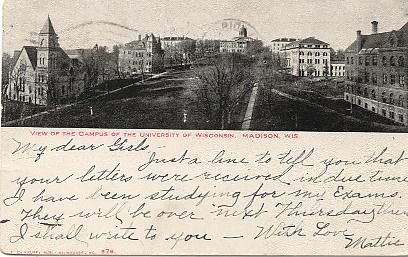 VIEW OF THE CAMPUS OF THE UNIVERSITY OF WISCONSIN, MADISON, WIS
My dear Girls,
Just a line to tell you that
your letters were received in due time
I have been studying for my Exams.
They will be over next Thursday then
I shall write to you — With Love
Mattie